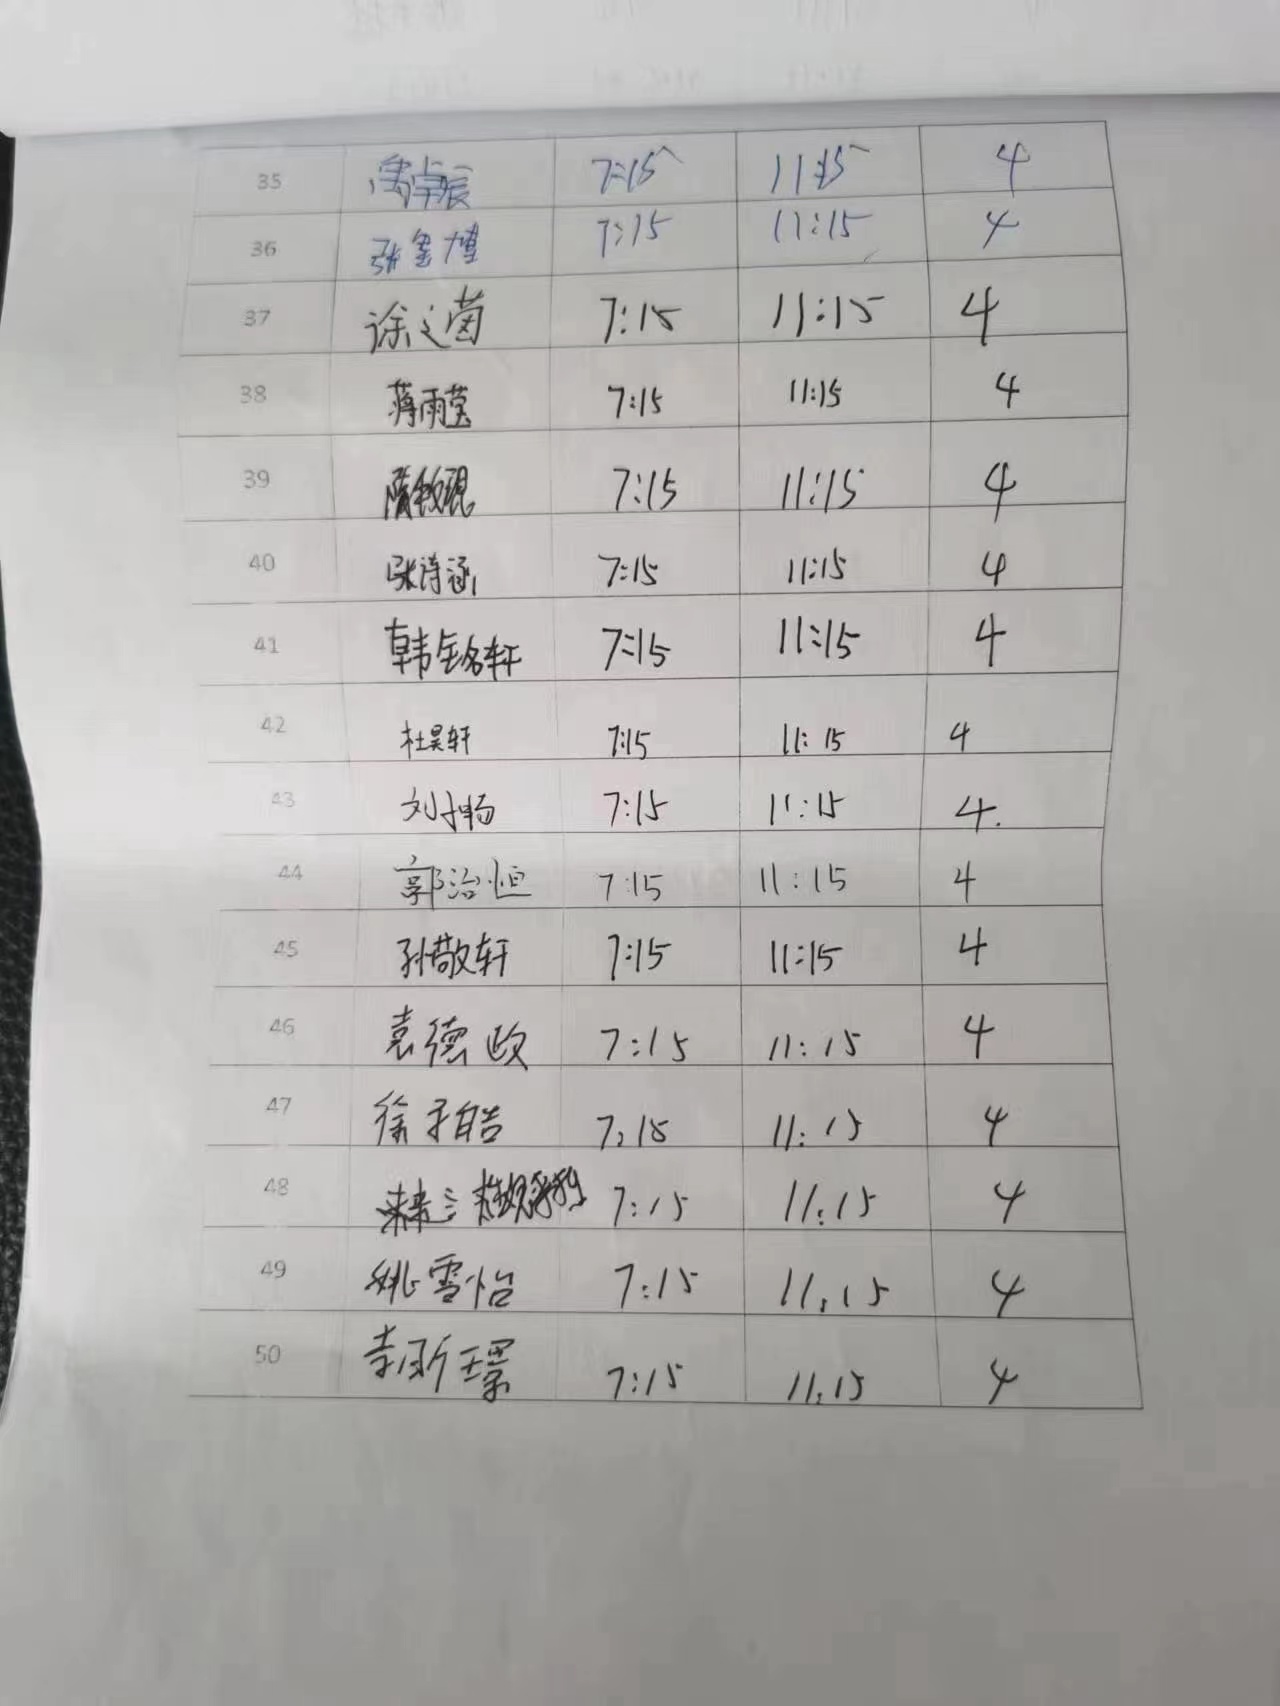 35 7:15 11:15 4
36 张 博 7:15 11:15 4
37 徐之茵 7:15 11:15 4
38 蒋雨莹 7:15 11:15 4
39 隋 琨 7:15 11:15 4
40 张诗涵 7:15 11:15 4
41 韩铭轩 7:15 11:15 4
42 杜昊轩 7:15 11:15 4
43 刘子畅 7:15 11:15 4.
44 郭治恒 7:15 11:15 4
45 孙敬轩 7:15 11:15 4
46 袁德政 7:15 11:15 4
47 徐子皓 7:15 11:15 4
48 7:15 11:15 4
49 姚雪怡 7:15 11:15 4
50 李昕璟 7:15 11:15 4